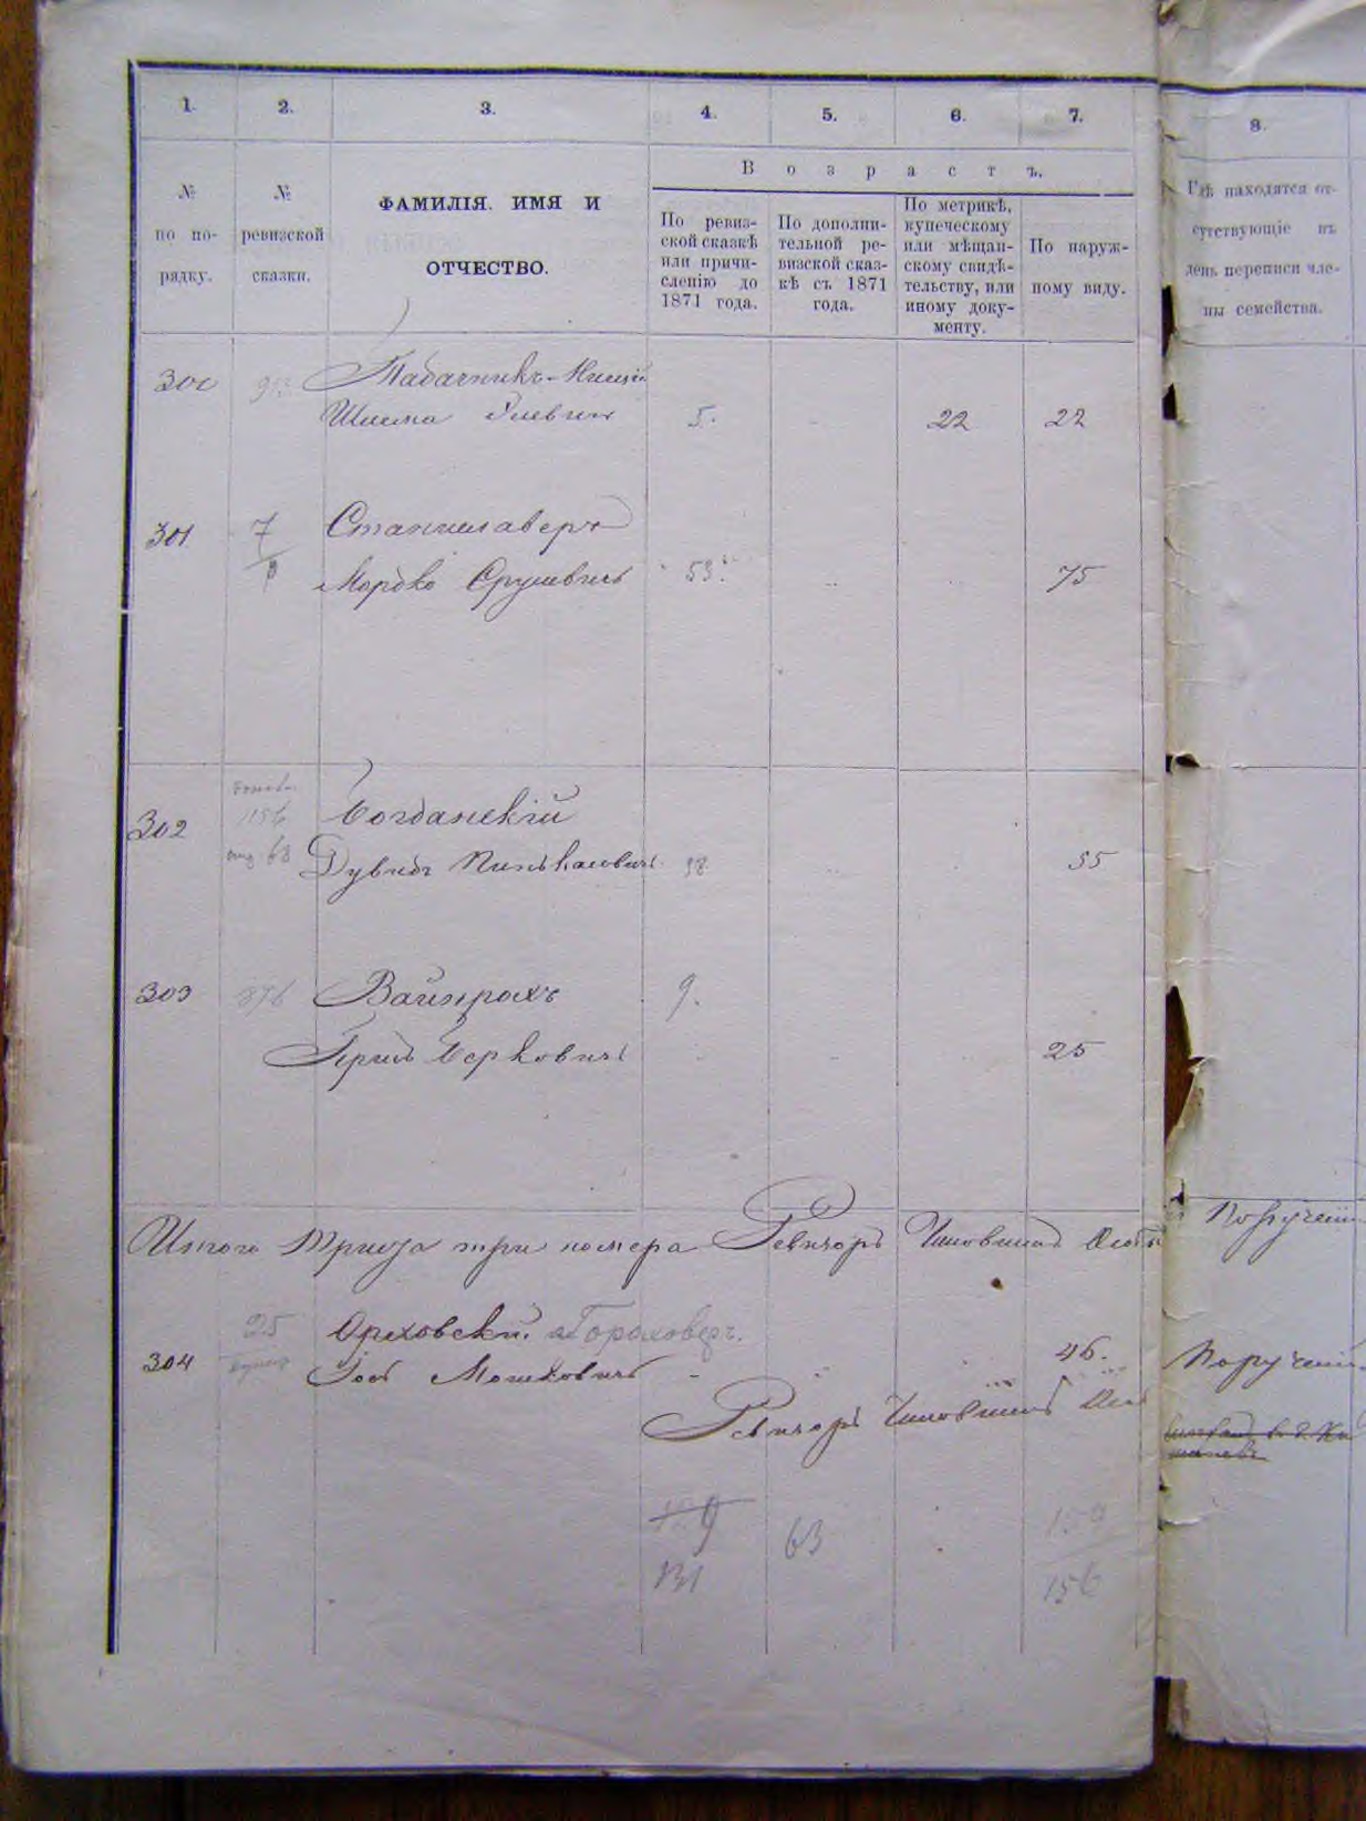 1. 2. 3. 4. 5. 6. 7. 8.
№ по по-рядку.
№ ревизской сказки.
ФАМИЛІЯ. ИМЯ И
ОТЧЕСТВО.
Возрастъ.
По ревиз-
ской сказкѣ
или причи-
сленію до
1871 года.
По дополни-
тельной ре-
визской сказ-
кѣ съ 1871
года.
По метрикѣ,
купеческому
или мѣщан-
скому свидѣ-
тельству, или
иному доку-
менту.
По наруж-
ному виду.
Гдѣ находятся от-
сутствующіе въ
день переписи чле-
ны семейства.
300 Табачникъ-
Шлема 5. 22 22
301 7 Станиславеръ
Мордко Срулевичъ 53. 75
302 1156 Богданскій
68 Дувидъ Пинькасовичъ 38 55
303 876 Вайнтрохъ 9.
Берковичъ 25
Итого Триста три номера Ревизоръ Чиновникъ Поручені
25 Ореховскій Гороховеръ. 46.
304 Мошковичъ Поручені
Ревизоръ Чиновникъ
129 63 159
131 156